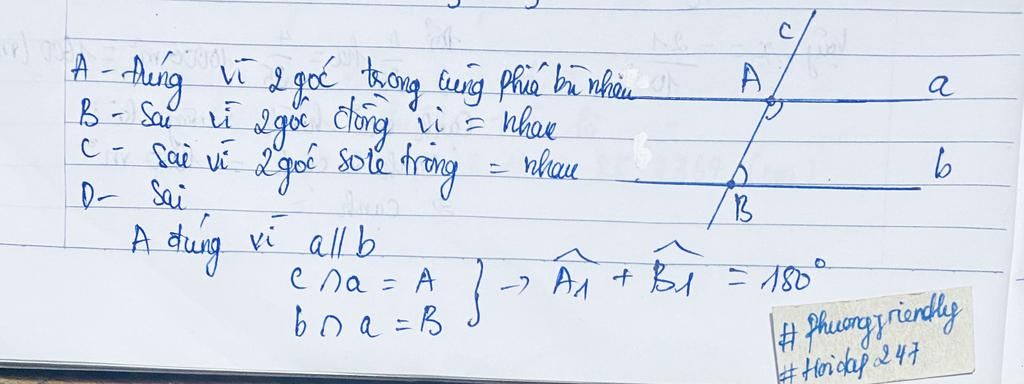 A - đúng vì 2 góc trong cùng phía bù nhau
B - Sai vì 2 góc đồng vị = nhau
C - Sai vì 2 góc sole trong = nhau
D - Sai
A đúng vì a // b
c ∩ a = A
b ∩ a = B
} → Â1 + B̂1 = 180°
c
A
a
b
B
# phuongfriendly
# Hoidap 247